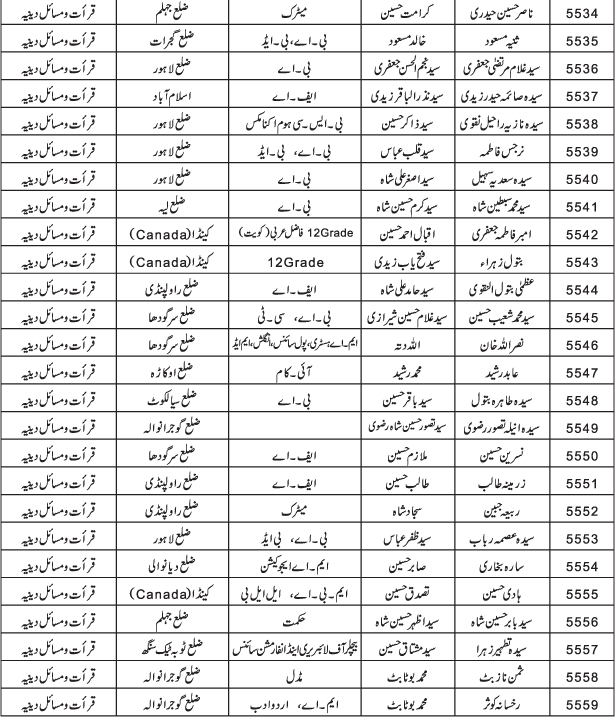 5534 ناصر حسین حیدری کرامت حسین میٹرک ضلع جہلم قرأت و مسائل دینیہ
5535 ثنیہ مسعود خالد مسعود بی۔اے، بی۔ایڈ ضلع گجرات قرأت و مسائل دینیہ
5536 سید غلام مرتضیٰ جعفری سید نجم الحسن جعفری بی۔اے ضلع لاہور قرأت و مسائل دینیہ
5537 سیدہ صائمہ حیدر زیدی سید نذر الباقر زیدی ایف۔اے اسلام آباد قرأت و مسائل دینیہ
5538 سیدہ نازیہ راحیل نقوی سید ذاکر حسین بی۔ایس۔سی ہوم اکنامکس ضلع لاہور قرأت و مسائل دینیہ
5539 نرجس فاطمہ سید قلب عباس بی۔اے، بی۔ایڈ ضلع لاہور قرأت و مسائل دینیہ
5540 سیدہ سعدیہ سہیل سید اصغر علی شاہ بی۔اے ضلع لاہور قرأت و مسائل دینیہ
5541 سید محمد سبطین شاہ سید کرم حسین شاہ بی۔اے ضلع لیہ قرأت و مسائل دینیہ
5542 امبر فاطمہ جعفری اقبال احمد حسین 12Grade فاضل عربی (کویت) کینڈا (Canada) قرأت و مسائل دینیہ
5543 بتول زہراء سید فتح یاب زیدی 12Grade کینڈا (Canada) قرأت و مسائل دینیہ
5544 عظمیٰ بتول النقوی سید حامد علی شاہ ایف۔اے ضلع راولپنڈی قرأت و مسائل دینیہ
5545 سید محمد شعیب حسین سید غلام حسین شیرازی بی۔اے، سی۔ٹی ضلع سرگودھا قرأت و مسائل دینیہ
5546 نصراللہ خان اللہ دتہ ایم۔اے ہسٹری، پول سائنس، انگلش، ایم ایڈ ضلع سرگودھا قرأت و مسائل دینیہ
5547 عابد رشید محمد رشید آئی۔کام ضلع اوکاڑہ قرأت و مسائل دینیہ
5548 سیدہ طاہرہ بتول سید باقر حسین بی۔اے ضلع سیالکوٹ قرأت و مسائل دینیہ
5549 سیدہ انیلہ تصور رضوی سید تصور حسین شاہ رضوی ضلع گوجرانوالہ قرأت و مسائل دینیہ
5550 نسرین حسین ملازم حسین ایف۔اے ضلع سرگودھا قرأت و مسائل دینیہ
5551 زرمینہ طالب طالب حسین ایف۔اے ضلع راولپنڈی قرأت و مسائل دینیہ
5552 ربیعہ جبین سجاد شاہ میٹرک ضلع راولپنڈی قرأت و مسائل دینیہ
5553 سیدہ عصمہ رباب سید ظفر عباس بی۔اے، بی ایڈ ضلع لاہور قرأت و مسائل دینیہ
5554 سارہ بخاری صابر حسین ایم۔اے ایجوکیشن ضلع دیانوالی قرأت و مسائل دینیہ
5555 ہادی حسین تصدق حسین ایم۔بی۔اے، ایل ایل بی کینڈا (Canada) قرأت و مسائل دینیہ
5556 سید بابر حسین شاہ سید اظہر حسین شاہ حکمت ضلع جہلم قرأت و مسائل دینیہ
5557 سیدہ تطہیر زہرا سید مشتاق حسین بیچلر آف لائبریری اینڈ انفارمشن سائنس ضلع ٹوبہ ٹیک سنگھ قرأت و مسائل دینیہ
5558 ثمن ناز بٹ محمد بوٹا بٹ مڈل ضلع گوجرانوالہ قرأت و مسائل دینیہ
5559 رخسانہ کوثر محمد بوٹا بٹ ایم۔اے، اردو ادب ضلع گوجرانوالہ قرأت و مسائل دینیہ